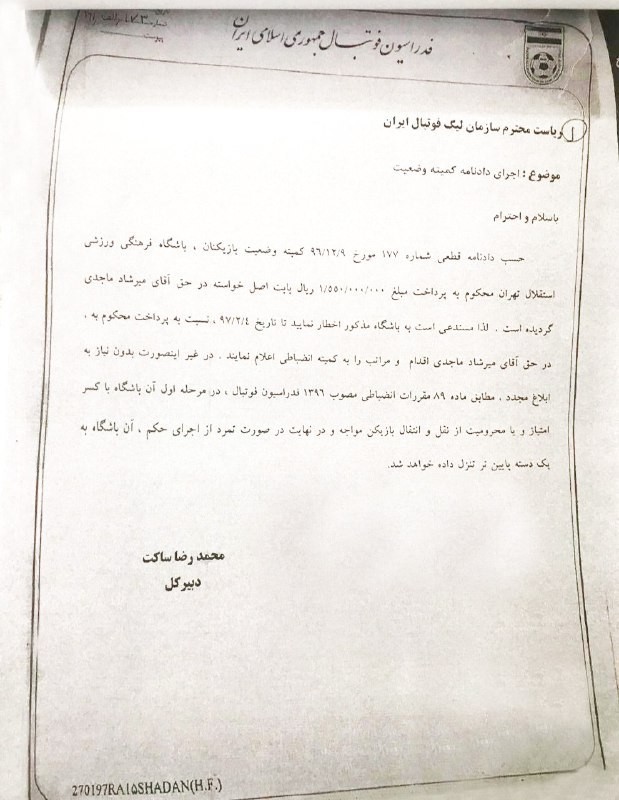 فدراسیون فوتبال جمهوری اسلامی ایران
ریاست محترم سازمان لیگ فوتبال ایران
موضوع : اجرای دادنامه کمیته وضعیت
باسلام و احترام
حسب دادنامه قطعی شماره ۱۷۷ مورخ ۹۶/۱۲/۹ کمیته وضعیت بازیکنان ، باشگاه فرهنگی ورزشی
استقلال تهران محکوم به پرداخت مبلغ ۱/۵۵۰/۰۰۰/۰۰۰ ریال بابت اصل خواسته در حق آقای میرشاد ماجدی
گردیده است . لذا مستدعی است به باشگاه مذکور اخطار نمایید تا تاریخ ۹۷/۲/۴ ، نسبت به پرداخت محکوم به ،
در حق آقای میرشاد ماجدی اقدام و مراتب را به کمیته انضباطی اعلام نمایند . در غیر اینصورت بدون نیاز به
ابلاغ مجدد ، مطابق ماده ۸۹ مقررات انضباطی مصوب ۱۳۹۶ فدراسیون فوتبال ، در مرحله اول آن باشگاه با کسر
امتیاز و یا محرومیت از نقل و انتقال بازیکن مواجه و در نهایت در صورت تمرد از اجرای حکم ، آن باشگاه به
یک دسته پایین تر تنزل داده خواهد شد.
محمد رضا ساکت
دبیرکل
270197RA15SHADAN(H.F.)